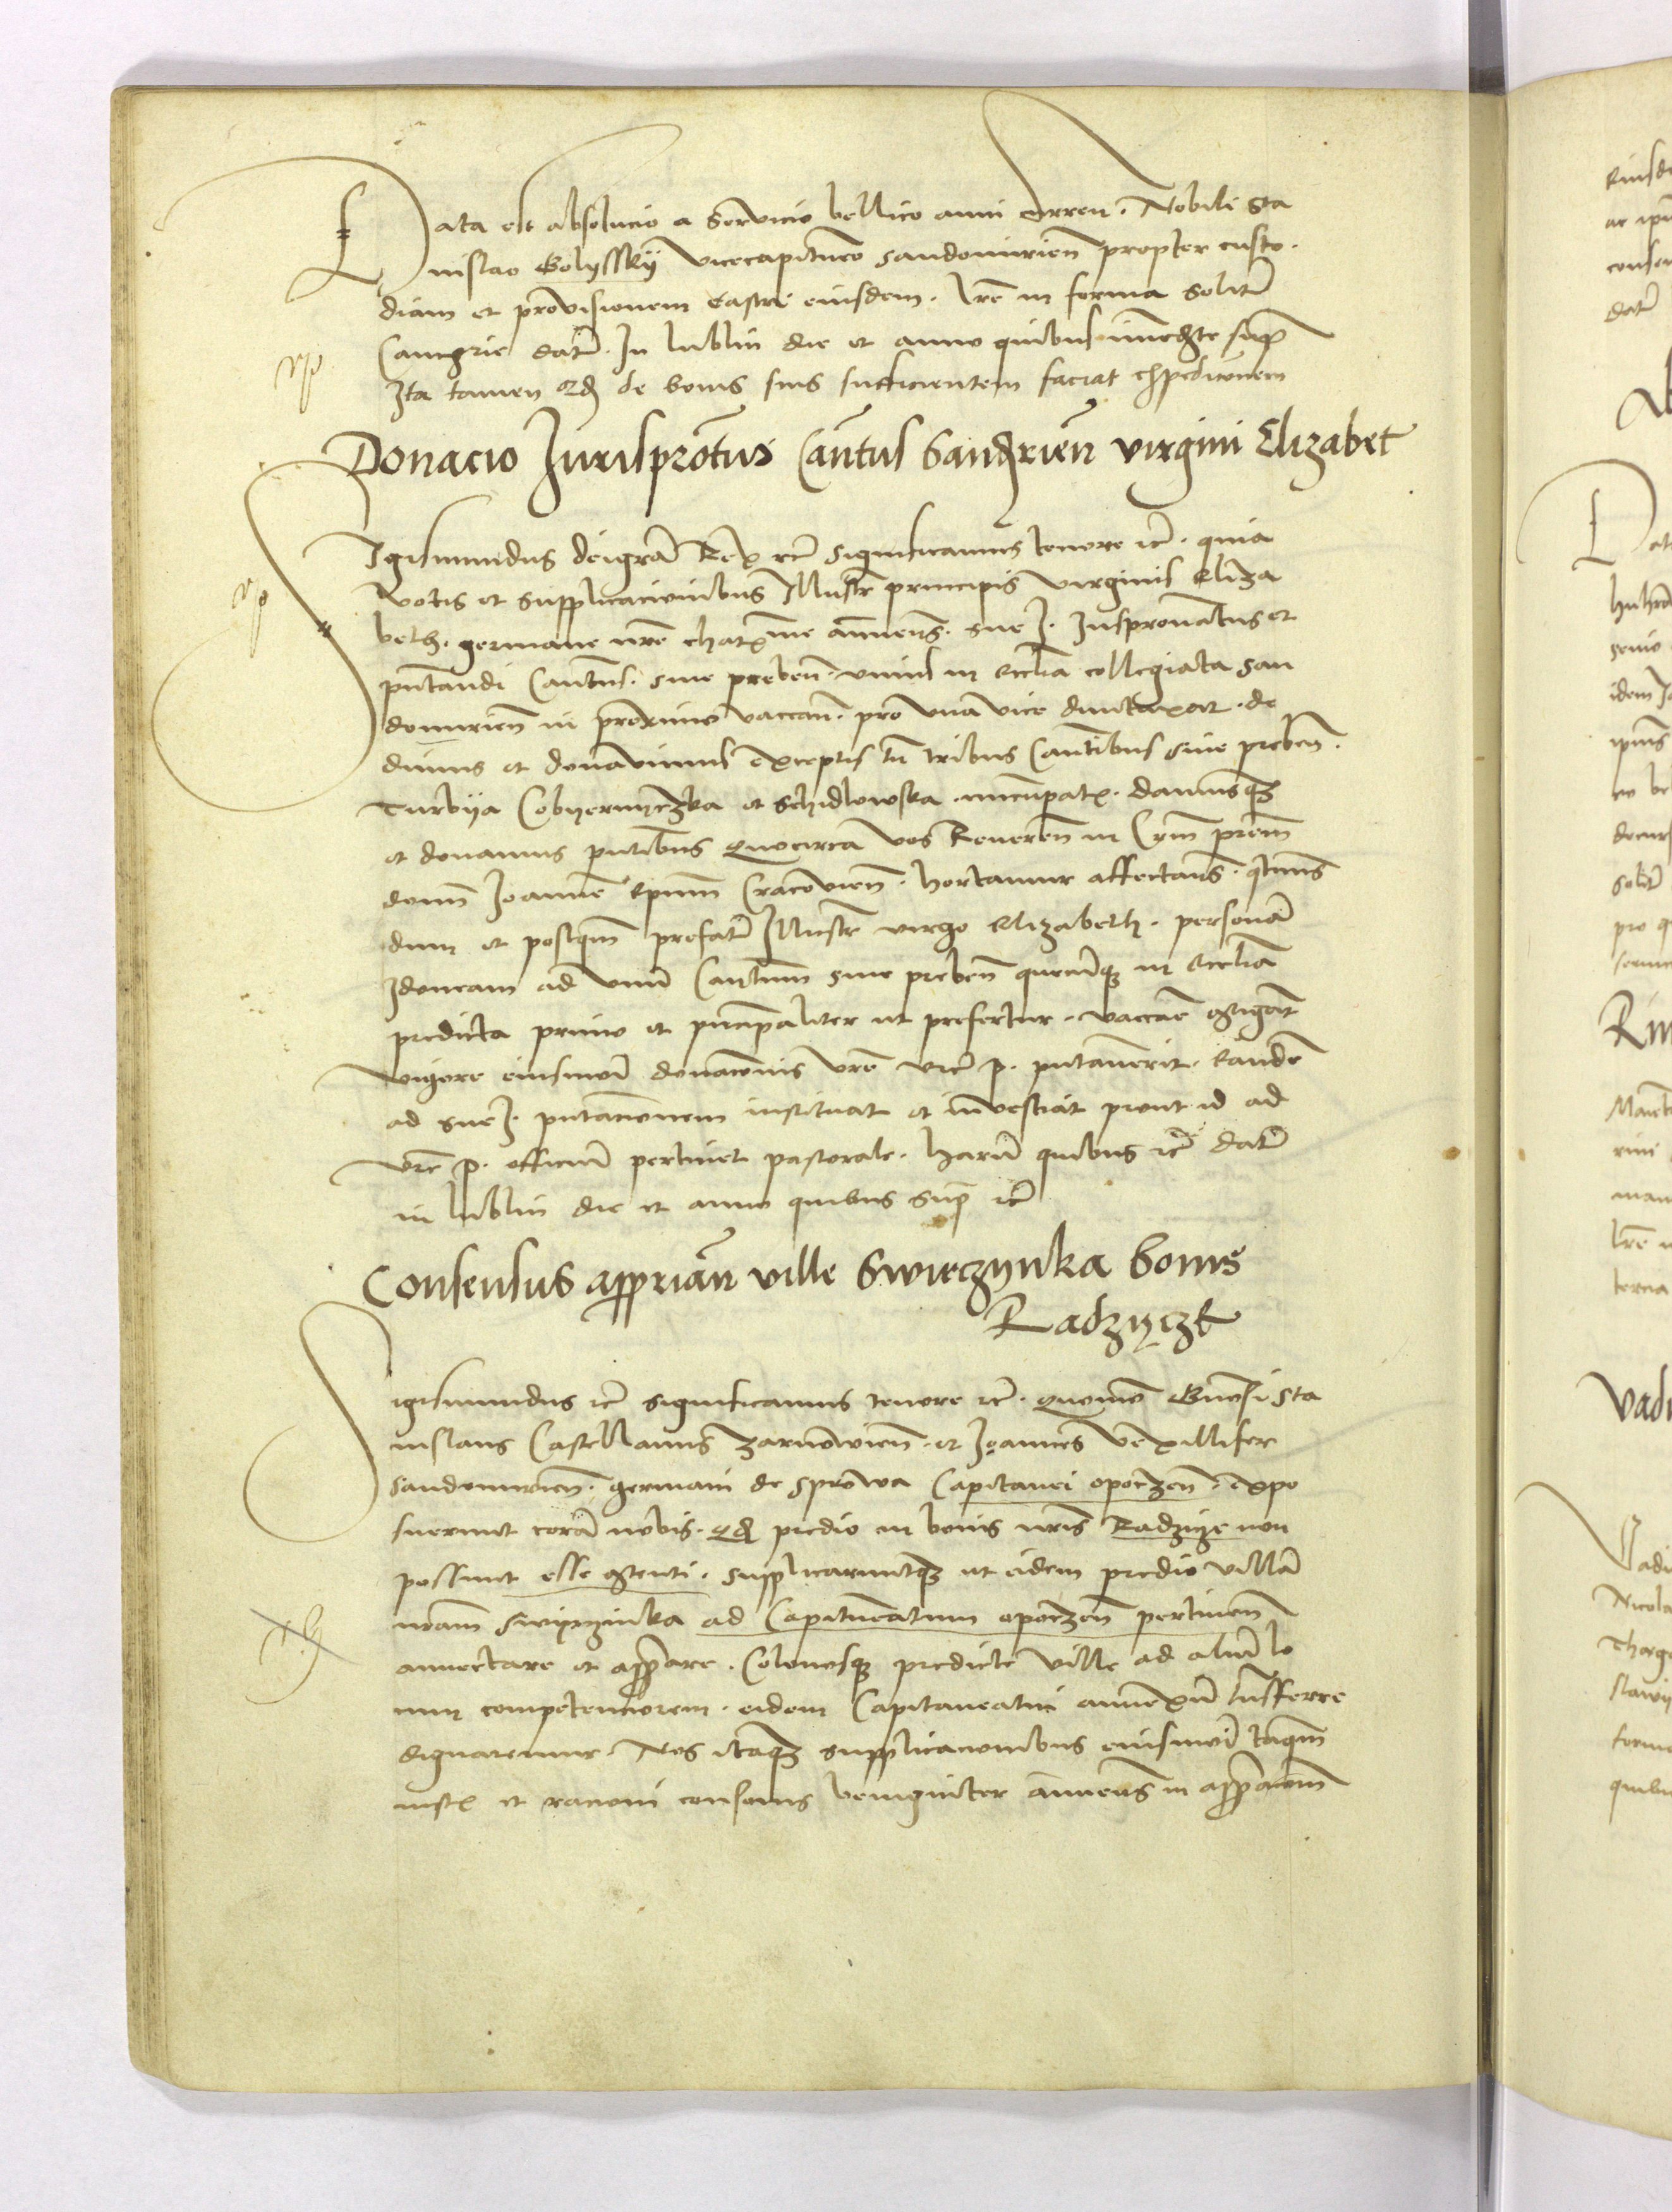 Data est absolucio a servicio bellico anni curren. Nobili Sta
nislao Golyssky vicecapitneo sandomirien propter custo
diam et provisionem castri eiusdem. lre in forma solit
Cancgrie dat. In lublin die et anno quibus immediate sup
Ita tamen qd de bonis suis sufficientem faciat expedicionem
Donacio Jurisprontus Cantus Sandrien virgini Elizabet
Sigismundus deigra Rex etc significamus tenore etc. quia
votis et supplicacionibus Illustr principis virginis Eliza
beth. germane nre charme annuens. sue J. Juspronatus et
pntandi Cantus. sive preben. unius in Ecclia collegiata san
domirien in proximo vaccan. pro una vice duntaxat. de
dimus et donavimus exceptis tn tribus Cantibus sive preben.
Turbya Cobyernyczka et Schidlowska nuncupat. damusqz
et donamus pntibus Quocirca vos Reveren in Crm prem
domn Joannem Epum Cracovien. hortamur affectans. qtnus
dum et postqm prefat Illustr virgo Elizabeth. persona
Idoneam ad unu Cantum sive preben quecuqz in Ecclia
predicta primo et principaliter ut prefertur. vaccare contigat
vigore eiusmoi donaconis vre vre p. pntaverit. eande
ad sue J. pntacionem instituat et investiat prout id ad
vre p. officiu pertinet pastorale. haru quibus etc dat
in lublin die et anno quibus sup etc
Consensus appriam ville Swieczynka bonis
Radzycze
Sigismundus etc significamus tenore etc. quomo Gnosi Sta
nislaus Castellanus zarnowien. et Joannes vexillifer
sandomirien. germani de Sprowa Capitanei opoczen. expo
suerunt cora nobis. qd predio in bonis nris Radzyze non
possunt esse contenti. supplicaruntqz ut eidem predio villa
nram Swyczinka ad Capitneatum opoczen pertinen
annectare et appare. Colonosqz predicte ville ad aliu lo
cum competenciorem. eidem Capitaneatui annexu tnsferre
dignaremur. Nos itaqz supplicacionibus eiusmoi taqm
iustis et racioni consonis benigniter annuens in appacom